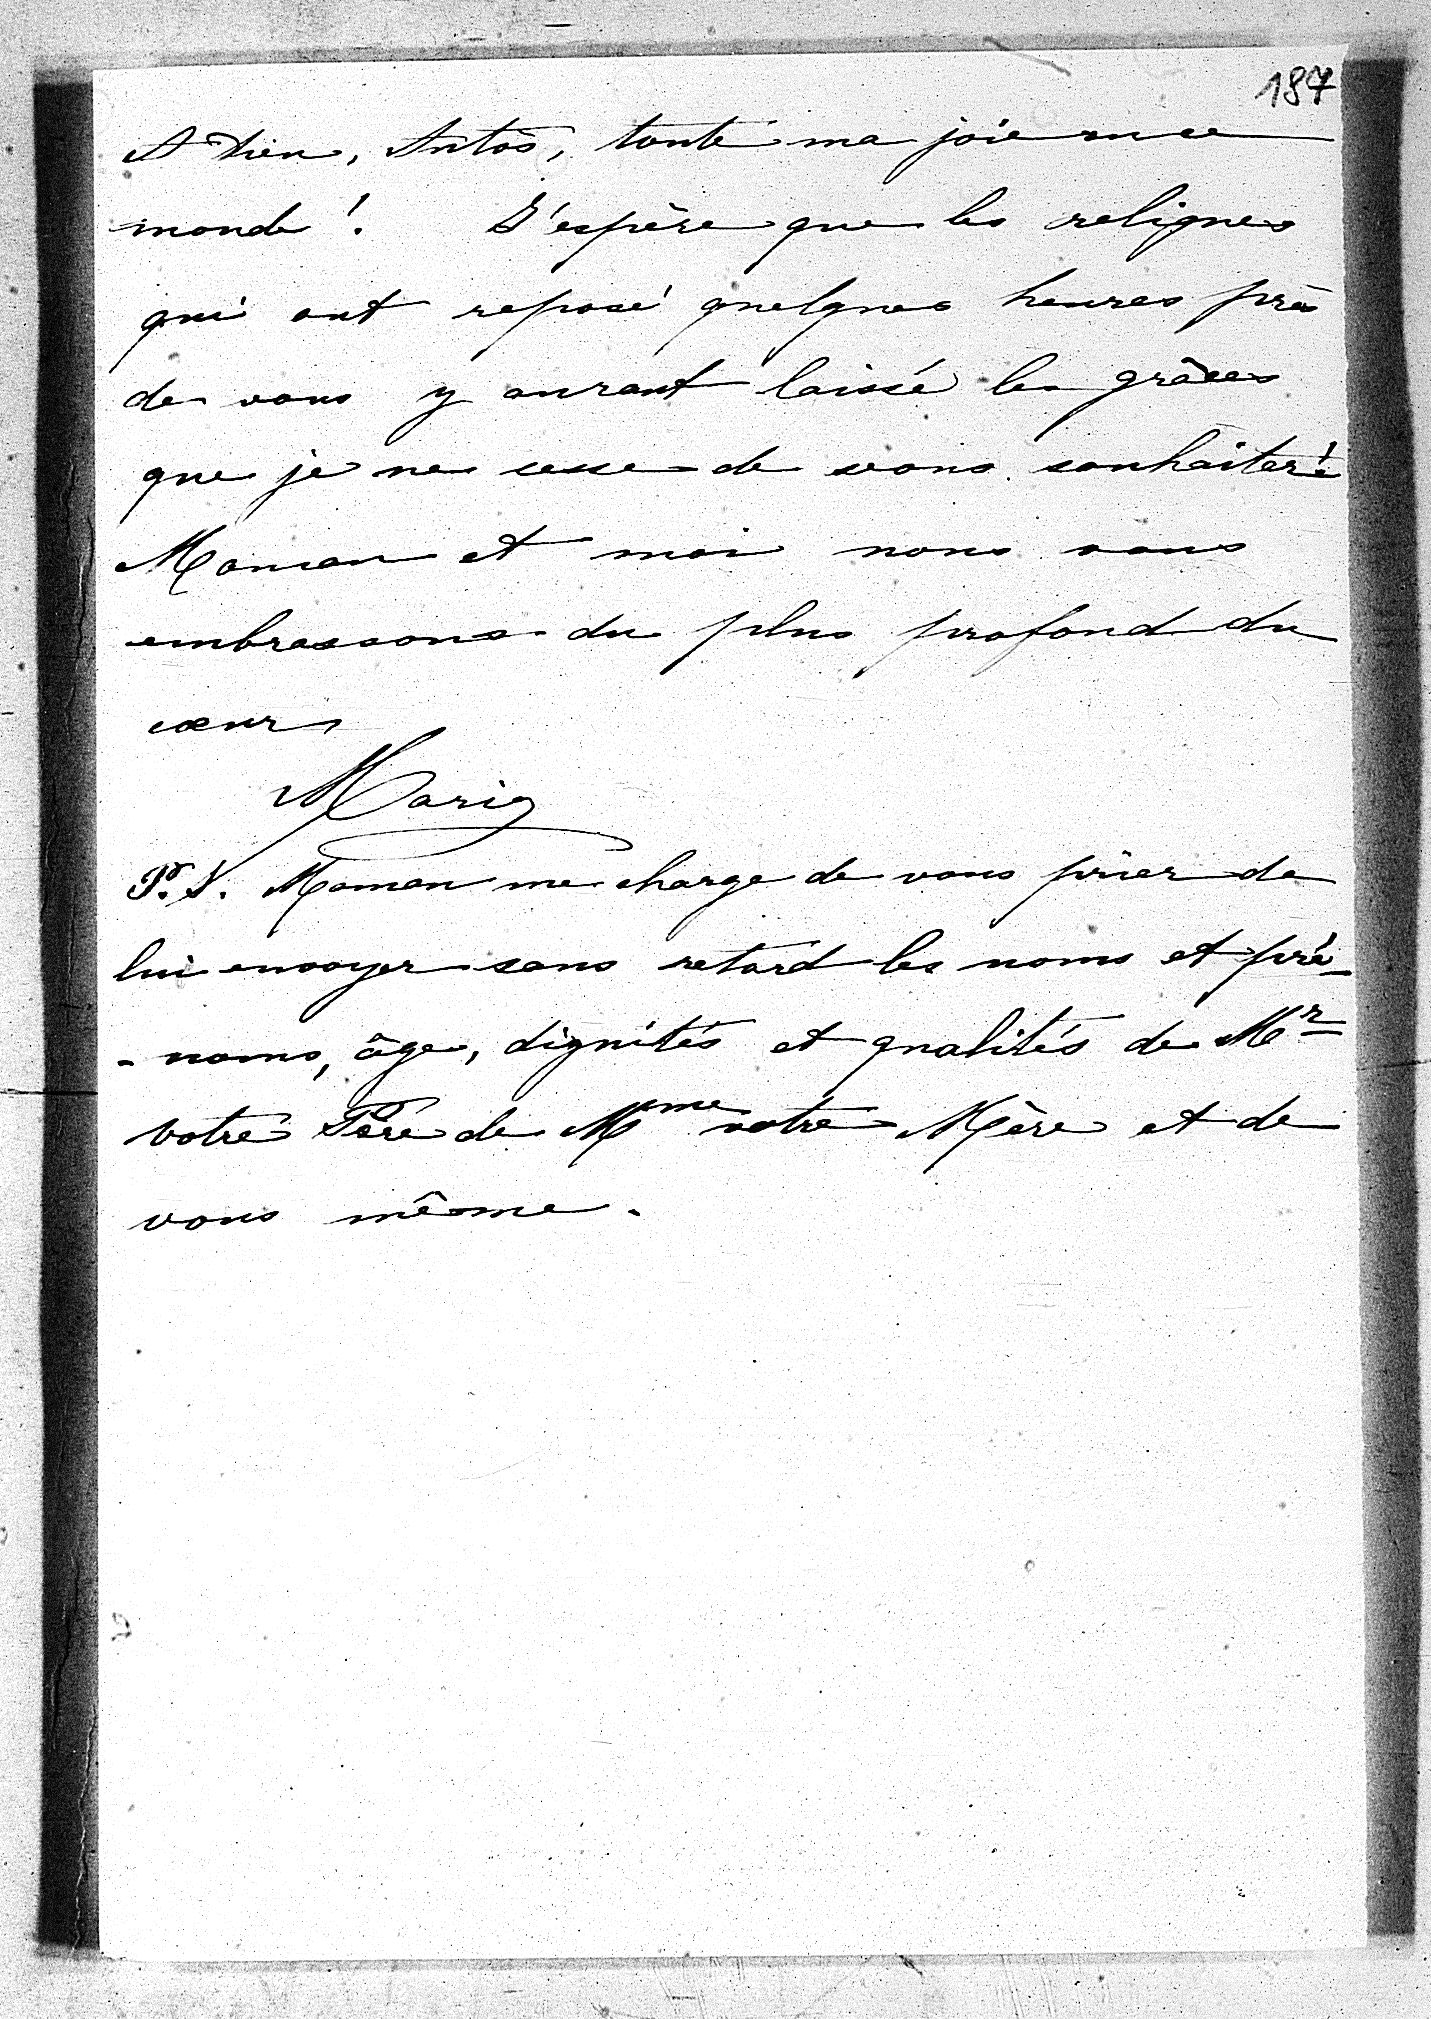 187
A Dieu, Antos, toute ma joie en ce
monde ! J'espère que les reliques
qui ont reposé quelques heures près
de vous y auront laissé les grâces
que je ne cesse de vous souhaiter !
Maman et moi nous vous
embrassons du plus profond du
cœur
Marie
P. S. Maman me charge de vous prier de
lui envoyer sans retard les noms et pré-
- noms, âge, dignités et qualités de Mr
votre Père de Mme votre Mère et de
vous même.